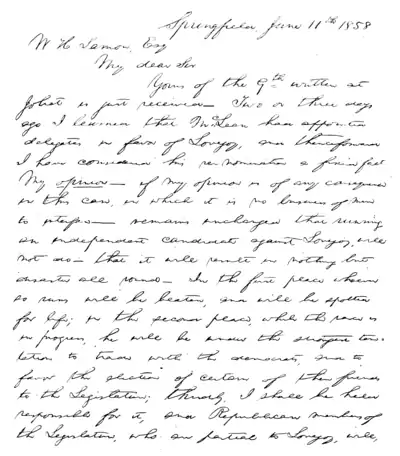 Springfield, June 11th 1858
W. H. Lamon, Esq
My dear Sir
Yours of the 9th written at
Joliet is just received — Two or three days
ago I learned that McLean had appointed
delegates in favor of Lovejoy, and thenceforward
I have considered his re-nomination a fixed fact
My opinion — if my opinion is of any consequence
in this case, in which it is no business of mine
to interfere — remains unchanged that running
an independent candidate against Lovejoy, will
not do — that it will result in nothing but
disaster all round — In the first place whoever
so runs will be beaten, and will be spotted
for life; in the second place, while the race is
in progress, he will be under the strongest temp-
tation to trade with the democrats, and to
favor the election of certain of their friends
to the Legislature; thirdly, I shall be held
responsible for it, and Republican members of
the Legislature, who are partial to Lovejoy, will,